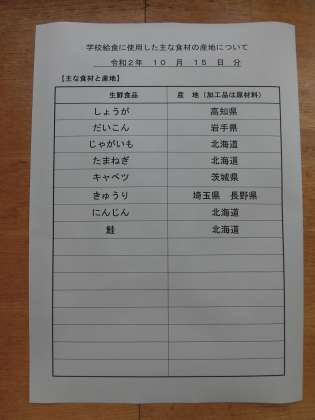 学校給食に使用した主な食材の産地について
令和２年　１０　月　１５　日　分
【主な食材と産地】
生鮮食品　産　地（加工品は原材料）
しょうが　高知県
だいこん　岩手県
じゃがいも　北海道
たまねぎ　北海道
キャベツ　茨城県
きゅうり　埼玉県　長野県
にんじん　北海道
鮭　北海道